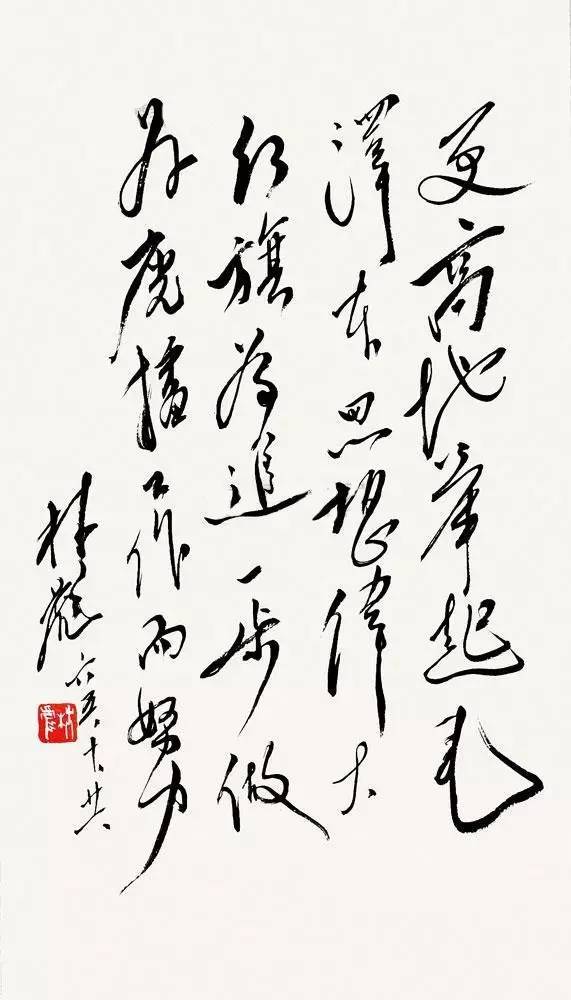 更高地举起毛
澤东思想偉大
红旗为進一步做
好廣播工作而努力
林彪 六五、十、廿六
林彪